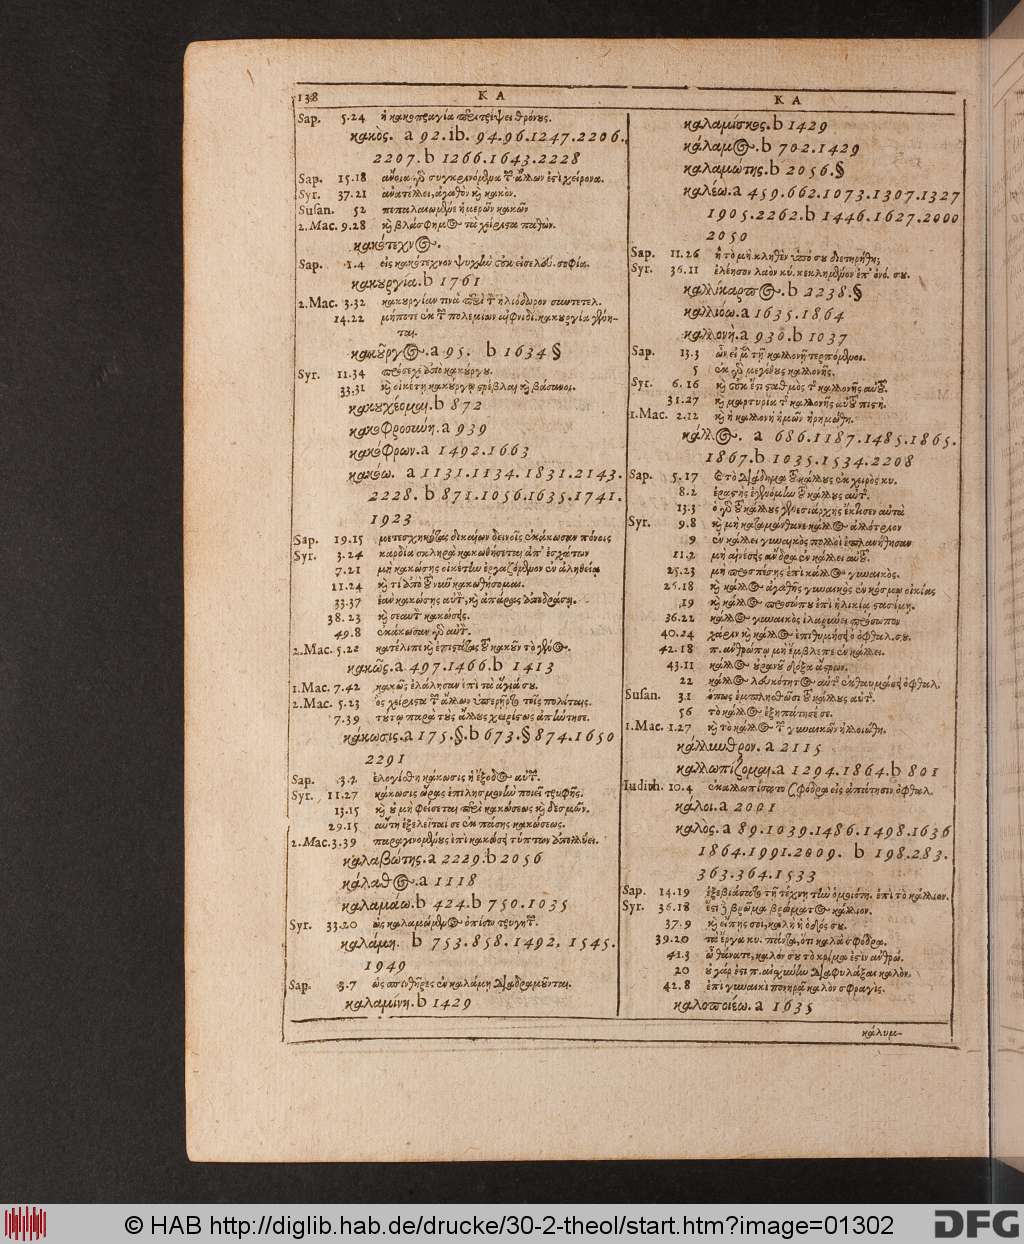 138 ΚΑ ΚΑ
Sap. 5.24 ἡ κακοπραγία περιτρέψει θρόνους.
κακὸς. a 92.ib. 94.96.1247.2206.
2207.b 1266.1643.2228
Sap. 15.18
Syr. 37.21 ἀνατέλλει, ἀγαθὸν κὴ κακὸν.
Susan. 52 πεπαλαιωμένε ἡμερῶν κακῶν
2.Mac. 9.28 κὴ βλάσφημος τὰ χείριστα παθὼν.
κακότεχνος.
Sap. 1.4 εἰς κακότεχνον ψυχὴν οὐκ εἰσελεύ. σοφία.
κακουργία.b 1761
2.Mac. 3.32 κακουργίαν τινὰ περὶ τὸν ἡλιόδωρον συντετελ.
14.22 μήποτε ἐκ τῶν πολεμίων αἰφνιδί. κακουργία γένη-
ται.
κακοῦργος.a 95. b 1634 §
Syr. 11.34 πρόσεχε ἀπὸ κακούργου.
33.31 κὴ οἰκέτῃ κακούργῳ στρέβλαι κὴ βάσανοι.
κακουχέομαι.b 872
κακοφροσύνη.a 939
κακόφρων.a 1492.1663
κακόω. a 1131.1134.1831.2143.
2228. b 871.1056.1635.1741.
1923
Sap. 19.15 δικαίων δεινοῖς ἐκάκωσαν πόνοις
Syr. 3.24 καρδία σκληρὰ κακωθήσεται ἀπ' ἐσχάτων
7.21 μὴ κακώσῃς οἰκέτην ἐργαζόμενον ἐν ἀληθείᾳ
11.24 κὴ τί ἀπὸ τοῦ νῦν κακωθήσομαι.
33.37 ἐὰν κακώσῃς αὐτὸν, κὴ ἀπάρας ἀποδράσῃ.
38.23 κὴ σεαυτὸν κακώσεις.
49.8 ἐκάκωσαν γὰρ αὐτὸν.
2.Mac. 5.22 κατέλιπε κὴ ἐπιστάτας τοῦ κακοῦν τὸ γένος.
κακῶς.a 497.1466.b 1413
1.Mac. 7.42 κακῶς ἐλάλησαν ἐπὶ τὰ ἅγιά σου.
2.Mac. 5.23 ὃς χείριστα τῶν ἄλλων ὑπερῄρετο τοῖς πολίταις.
7.39 τούτῳ παρὰ τοὺς ἄλλους χειρίστως ἀπήντησε.
κάκωσις.a 175.§.b 673.§ 874.1650
2291
Sap. 3.2 ἐλογίσθη κάκωσις ἡ ἔξοδος αὐτῶν.
Syr. 11.27 κάκωσις ὥρας ἐπιλησμονὴν ποιεῖ τρυφῆς.
13.15 κὴ οὐ μὴ φείσεται περὶ κακώσεως κὴ δεσμῶν.
29.15 αὕτη ἐξελεῖταί σε ἐκ πάσης κακώσεως.
2.Mac. 3.39 παραγινομένους ἐπὶ κακώσει τύπτων ἀπολλύει.
καλαβώτης.a 2229.b 2056
κάλαθος.a 1118
καλαμάω.b 424.b 750.1035
Syr. 33.20 ὡς καλαμώμενος ὀπίσω τρυγητῶν.
καλάμη. b 753.858.1492, 1545.
1949
Sap. 3.7 ὡς σπινθῆρες ἐν καλάμῃ διαδραμοῦνται.
καλαμίνη.b 1429
καλαμίσκος.b 1429
κάλαμος.b 702.1429
καλαμώτης.b 2056.§
καλέω.a 459.662.1073.1307.1327
1905.2262.b 1446.1627.2000
2050
Sap. 11.26 ἢ τὸ μὴ κληθὲν ὑπό σου διετηρήθη;
Syr. 36.11 ἐλέησον λαὸν κύ. κεκλημένον ἐπ' ὀνό. σου.
καλλίκαρπος.b 2238.§
καλλιόω.a 1635.1864
καλλονὴ.a 930.b 1037
Sap. 13.3 ὧν εἰ μὲν τῇ καλλονῇ τερπόμενοι.
5 ἐκ γὰρ μεγέθους καλλονῆς.
Syr. 6.16 κὴ οὐκ ἔστι σταθμὸς τῆς καλλονῆς αὐτοῦ.
31.27 κὴ μαρτυρία τῆς καλλονῆς αὐτοῦ πιστή.
1.Mac. 2.12 κὴ ἡ καλλονὴ ἡμῶν ἠρημώθη.
κάλλος. a 686.1187.1485.1865.
1867.b 1035.1534.2208
Sap. 5.17 καὶ τὸ διάδημα τοῦ κάλλους ἐκ χειρὸς κυ.
8.2 ἐραστὴς ἐγενόμην τοῦ κάλλους αὐτῆς.
13.3 ὁ γὰρ τοῦ κάλλους γενεσιάρχης ἔκτισεν αὐτὰ
Syr. 9.8 κὴ μὴ καταμάνθανε κάλλος ἀλλότριον
9 ἐν κάλλει γυναικὸς πολλοὶ ἐπλανήθησαν
11.2 μὴ αἰνέσῃς ἄνδρα ἐν κάλλει αὐτοῦ.
25.23 μὴ προσπέσῃς ἐπὶ κάλλος γυναικὸς.
26.18 κὴ κάλλος ἀγαθῆς γυναικὸς ἐν κόσμῳ οἰκίας
19 κὴ κάλλος προσώπου ἐπὶ ἡλικίᾳ στασίμῃ.
36.22 κάλλος γυναικὸς ἱλαρύνει πρόσωπον
40.24 χάριν κὴ κάλλος ἐπιθυμήσει ὁ ὀφθαλ. σου.
42.18 π. ἀνθρώπῳ μὴ ἔμβλεπε ἐν κάλλει.
43.11 κάλλος οὐρανοῦ δόξα ἄστρων.
22 κάλλος λευκότητος αὐτῆς ἐκθαυμάσει ὀφθαλ.
Susan. 31 ὅπως ἐμπλησθῶσι τοῦ κάλλους αὐτῆς.
56 τὸ κάλλος ἐξηπάτησέ σε.
1.Mac. 1.27 κὴ τὸ κάλλος τῶν γυναικῶν ἠλλοιώθη.
κάλλυνθρον.a 2115
καλλωπίζομαι.a 1294.1864.b 801
Iudith. 10.4 ἐκαλλωπίσατο σφόδρα εἰς ἀπάτησιν ὀφθαλ.
κάλοι.a 2001
καλὸς.a 89.1039.1486.1498.1636
1864.1991.2009. b 198.283.
363.364.1533
Sap. 14.19 ἐξεβιάσατο τῇ τέχνῃ τὴν ὁμοιότη. ἐπὶ τὸ κάλλιον.
Syr. 36.18 ἔστι γὰρ βρῶμα βρώματος κάλλιον.
37.9 κὴ εἴπῃ σοι, καλὴ ἡ ὁδός σου.
39.20 τὰ ἔργα κυ. πάντα, ὅτι καλὰ σφόδρα.
41.3 ὦ θάνατε, καλόν σου τὸ κρίμα ἐστὶν ἀνθρώ.
20 οὐ γάρ ἐστι π. αἰσχύνην διαφυλάξαι καλὸν.
42.8 ἐπὶ γυναικὶ πονηρᾷ καλὸν σφραγὶς.
καλοποιέω.a 1635
κάλυμ-
© HAB http://diglib.hab.de/drucke/30-2-theol/start.htm?image=01302
DFG